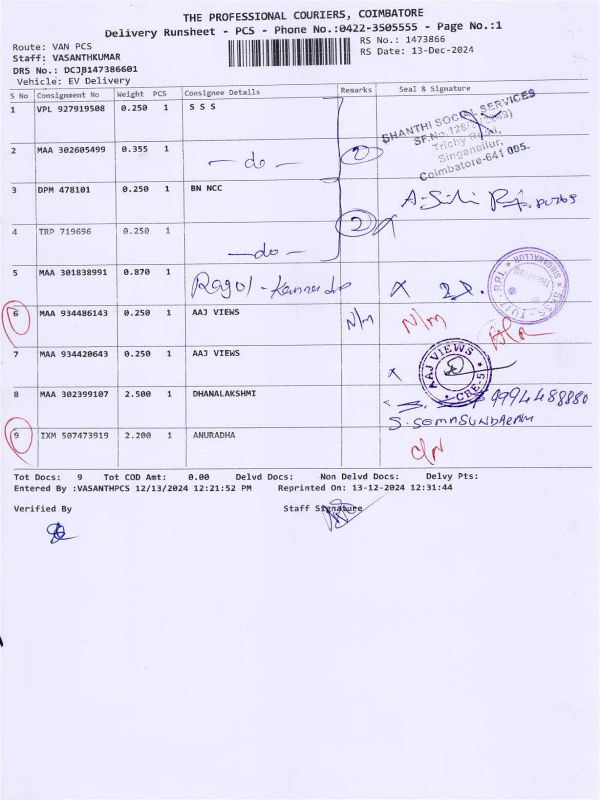 THE PROFESSIONAL COURIERS, COIMBATORE
Delivery Runsheet - PCS - Phone No.:0422-3505555 - Page No.:1
Route: VAN PCS
RS No.: 1473866
Staff: VASANTHKUMAR
RS Date: 13-Dec-2024
DRS No.: DCJB147386601
Vehicle: EV Delivery
S No Consignment No Weight PCS Consignee Details Remarks Seal & Signature
1 VPL 927919508 0.250 1 S S S
SHANTHI SOCIAL SERVICES
Trichy Road,
Singanallur,
Coimbatore-641 005.
2 MAA 302605499 0.355 1 — do — 2
3 DPM 478101 0.250 1 BN NCC
4 TRP 719696 0.250 1 — do — 2
5 MAA 301838991 0.870 1 X
6 MAA 934486143 0.250 1 AAJ VIEWS N/m N/m
7 MAA 934420643 0.250 1 AAJ VIEWS X
AAJ VIEWS
CBE-5
8 MAA 302399107 2.500 1 DHANALAKSHMI 9994488880
S. SOMASUNDARAM
9 IXM 507473919 2.200 1 ANURADHA
Tot Docs: 9 Tot COD Amt: 0.00 Delvd Docs: Non Delvd Docs: Delvy Pts:
Entered By :VASANTHPCS 12/13/2024 12:21:52 PM Reprinted On: 13-12-2024 12:31:44
Verified By Staff Signature